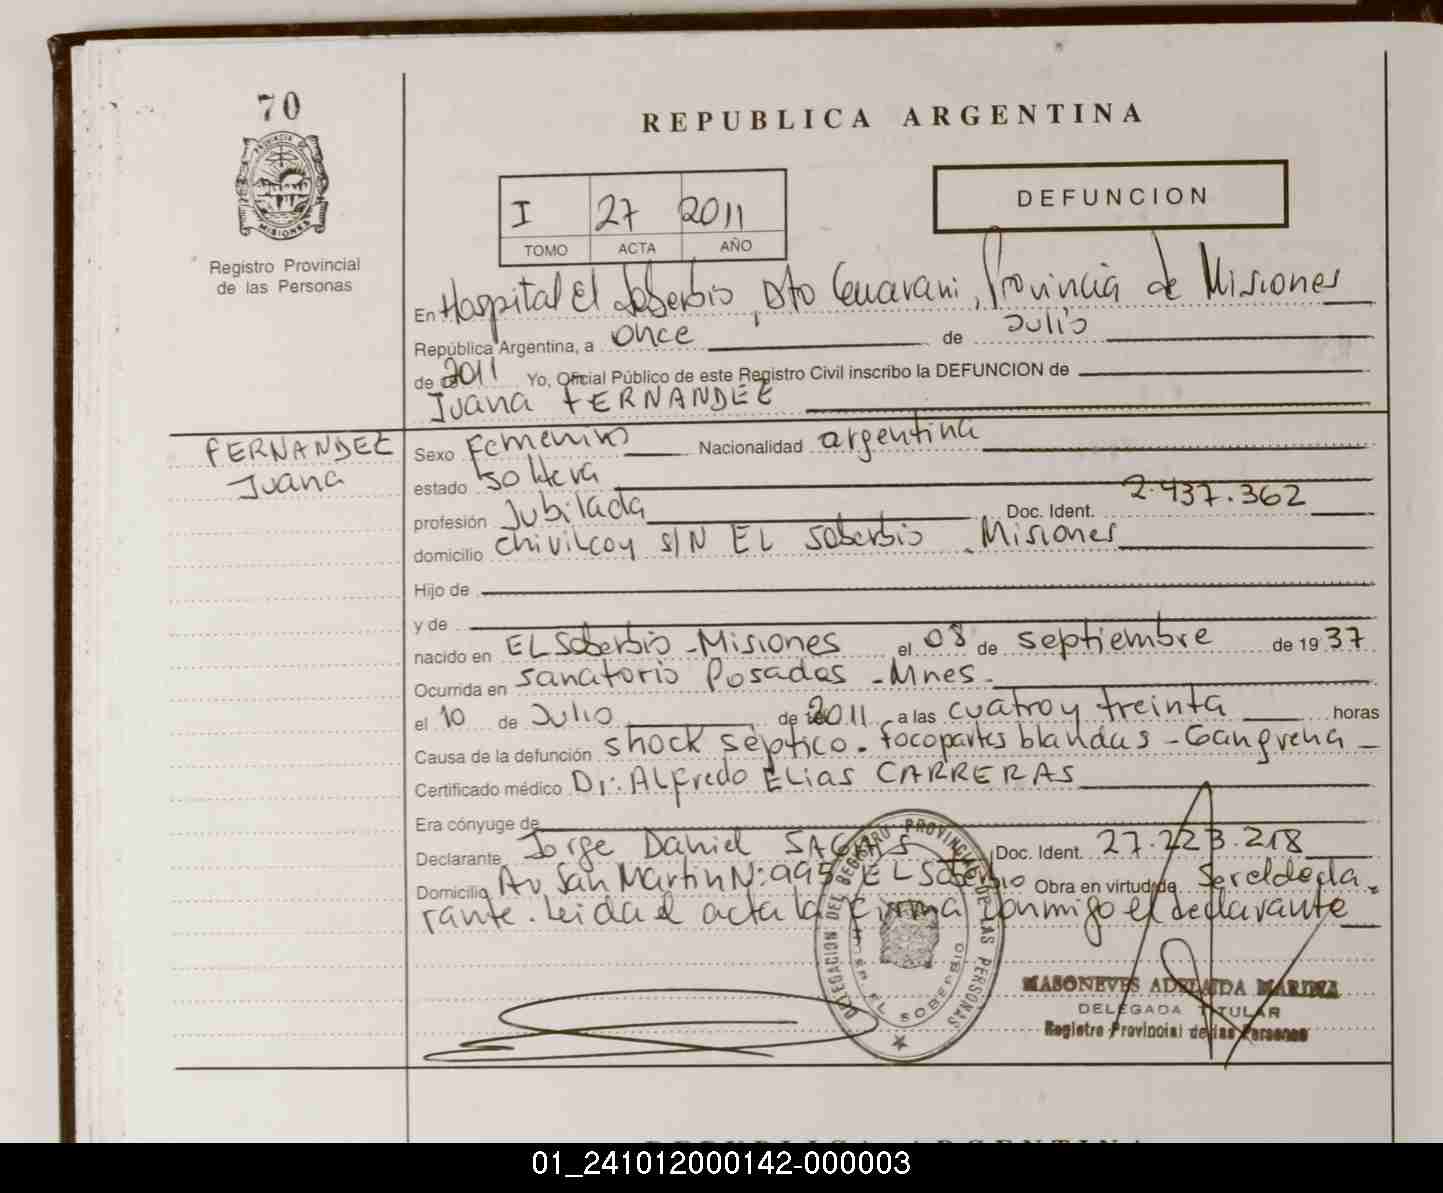 70
REPUBLICA ARGENTINA
PROVINCIA DE
MISIONES
Registro Provincial
de las Personas
DEFUNCION
I 27 2011
TOMO ACTA AÑO
En Hospital El Soberbio, Dto Guarani, Provincia de Misiones
República Argentina, a once de Julio
de 2011 Yo, Oficial Público de este Registro Civil inscribo la DEFUNCION de
Juana FERNANDEZ
FERNANDEZ
Juana
Sexo Femenino Nacionalidad argentina
estado Soltera
profesión Jubilada Doc. Ident. 2.437.362
domicilio Chivilcoy S/N EL Soberbio - Misiones
Hijo de
y de
nacido en EL Soberbio - Misiones el 08 de septiembre de 1937
Ocurrida en Sanatorio Posadas - Mnes.
el 10 de Julio de 2011 a las cuatro y treinta horas
Causa de la defunción shock séptico. foco partes blandas - Gangrena -
Certificado médico Dr. ALfredo ELias CARRERAS
Era cónyuge de
Declarante Jorge Daniel Doc. Ident. 27.223.218
Domicilio Av. San Martin N: 995 EL Soberbio Obra en virtud de Ser el decla
rante. Leida el acta la firma conmigo el declarante
DELEGACION DEL REGISTRO PROVINCIAL DE LAS PERSONAS
EL SOBERBIO
MASONEVES ADELAIDA MARINA
DELEGADA TITULAR
Registro Provincial de las Personas
REPUBLICA ARGENTINA
01_241012000142-000003